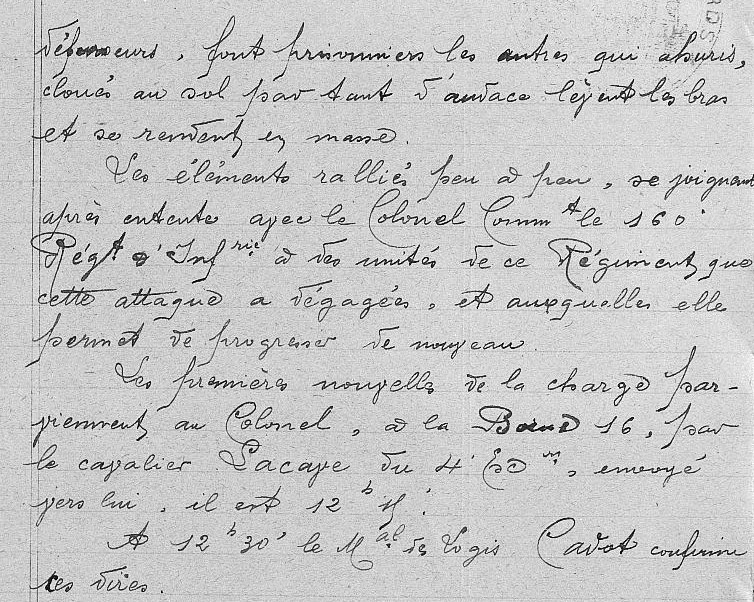 défenseurs, font prisonniers les autres qui ahuris,
cloués au sol par tant d'audace lèvent les bras
et se rendent en masse.
Les éléments ralliés peu à peu, se joignent
après entente avec le Colonel Commᵗ le 160ᵉ
Régᵗ d'Infʳⁱᵉ à des unités de ce Régiment que
cette attaque a dégagées, et auxquelles elle
permet de progresser de nouveau.
Les premières nouvelles de la charge par-
viennent au Colonel, à la Borne 16, par
le cavalier Lacave du 4ᵉ Escᵒⁿ, envoyé
vers lui, il est 12ʰ
A 12ʰ30' le Mᵃˡ des Logis Cadot confirme
ces dires.